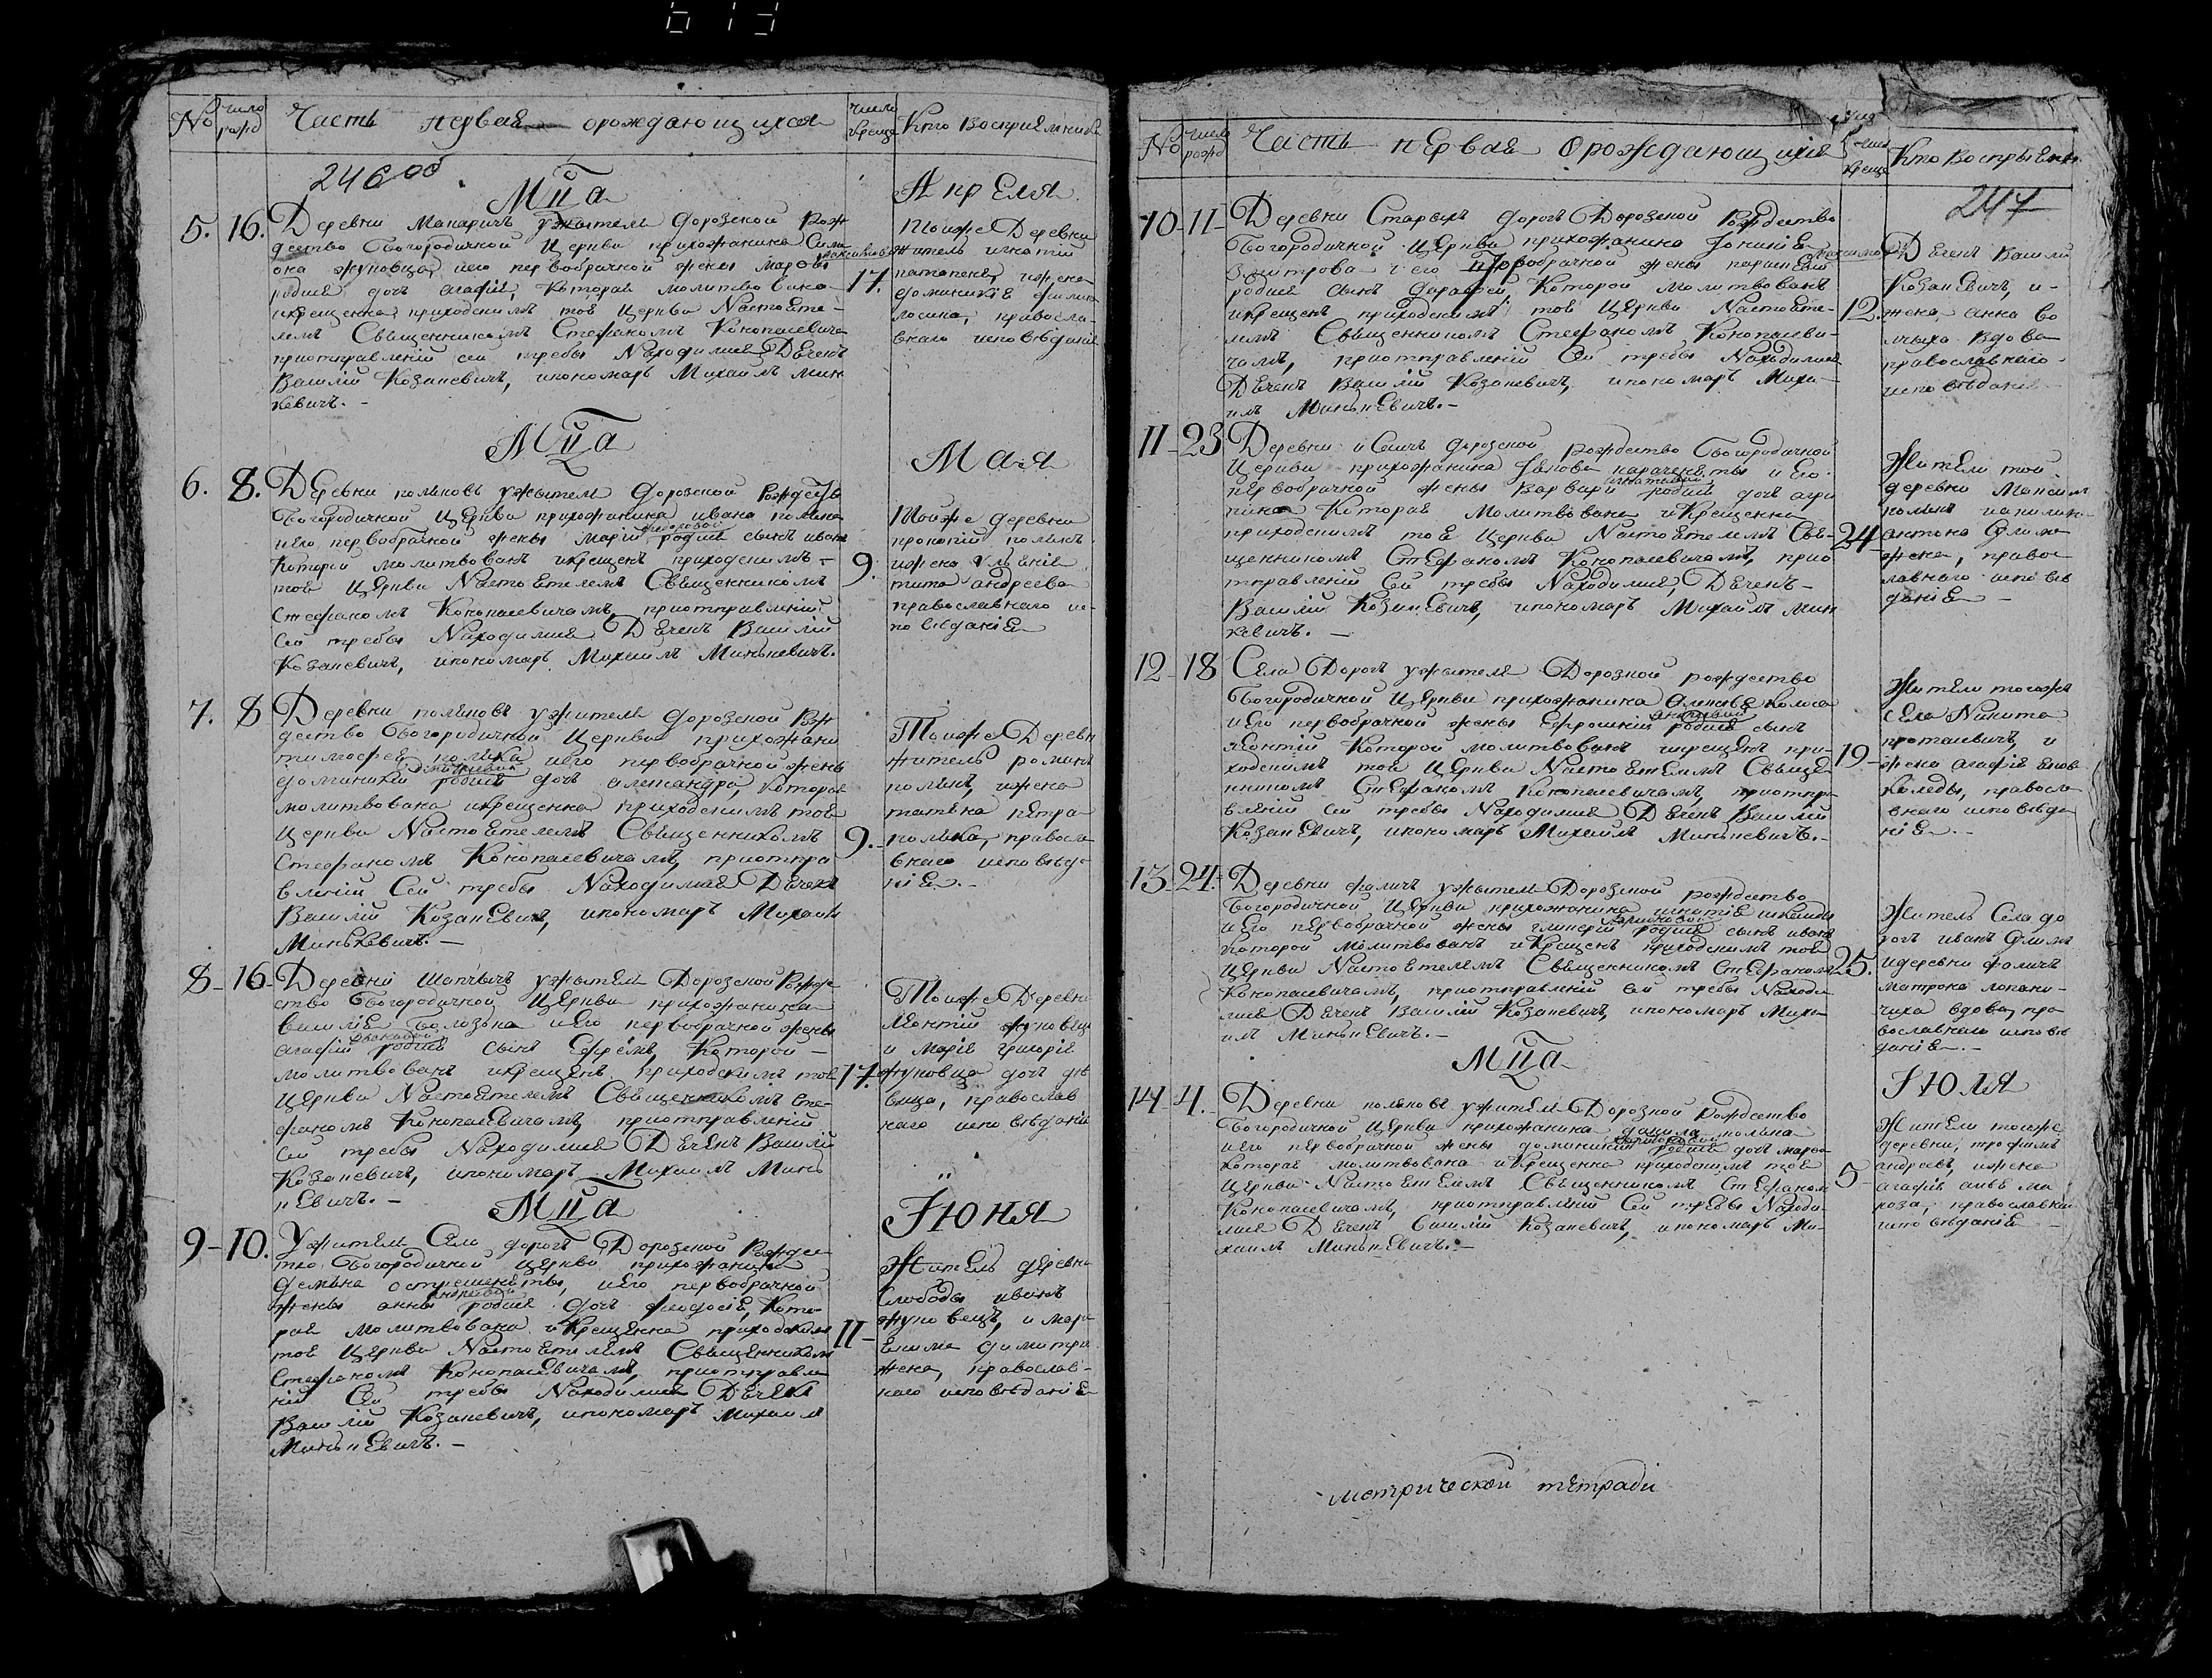 No
число рожд
Часть первая орождающихся
число креще
Кто восприемника
246 об
Мца
Апреля
5. 16.
Деревни Макаричъ ужителя Дорозской Рож
дество Богородичной Церкви прихожанина Сим
она жуковца, иего первобрачной жены Марфы
родися дочъ агафiя, Которая молитвована
икрещенна приходскимъ тоя Церкви Настояте-
лемъ Священникомъ Стефаномъ Конопасевича
приотправленiи сей требы Находился Дячекъ
Василiй Козакевичъ, ипономаръ Михаилъ Мин
кевичъ. -
17.
Тоиже Деревни
житель игнатiй
потапенко, ижена
домникiя
правосла-
внаго исповѣданiя
Мца
Мая
6. 8.
Деревни поляковъ ужытеля Дорозской Рождеств
Богородичной Церкви прихожанина ивана поляка
иего первобрачной жены Марiи родися сынъ иванъ
Которой молитвованъ икрещенъ приходскимъ -
тоя Церкви Настоятелемъ Священникомъ
Стефаномъ Конопасевичамъ, приотправленiи
Сей требы Находился Дячекъ Василiй
Козакевичъ, ипономаръ Михаилъ Минькевичъ.
9.
Тоиже деревни
прокопiй полякъ
ижена
тита андреева
православнаго ис-
повѣданiя
7. 8
Деревни поляковъ ужителя Дорозской Рож
дество Богородичной Церкви прихожани
тимофея поляка иего первобрачной жены
Доминикiи родися дочъ александра, Которая
молитвована икрещенна приходскимъ тоя
Церкви Настоятелемъ Священникомъ
Стефаномъ Конопасевичамъ, приотпра
вленiи Сей требы Находился Дячекъ
Василiй Козакевичъ, ипономаръ Михаилъ
Минькевичъ. -
9.
Тоиже Деревни
житель романъ
полякъ, ижена
татяна петра
поляка, правосла
внаго исповѣда
нiя. -
8 - 16
Деревни Шапчычъ ужытеля Дорозской Рожде
ство Богородичной Церкви прихожанина
Василiя Болозька иего первобрачной жены
агафiи родися сынъ Ефремъ, Которой -
молитвованъ икрещенъ приходскимъ тоя
Церкви Настоятелемъ Священникомъ Сте-
фаномъ Конопасевичамъ, приотправленiи
Сей требы Находился Дячекъ Василiй
Козакевичъ, ипономаръ Михаилъ Минь
кевичъ. -
17.
Тоиже Деревни
леонтiй жуковецъ
и Марiя григорiя
жуковца дочъ дѣ
вица, православ
наго исповѣданiя
Мца
Iюня
9 - 10.
Ужителя Села дорогъ Дорозской Рождес
тво Богородичной Церкви прихожанина
Демяна иего первобрачной
жены анны андреевой родися дочъ феодосiя, Кото-
рая молитвована икрещенна приходскимъ
тоя Церкви Настоятелемъ Священникомъ
Стефаномъ Конопасевичамъ, приотправле
нiи Сей требы Находился Дячекъ
Василiй Козакевичъ, ипономаръ Михаилъ
Минькевичъ. -
11 -
Житель деревни
Слободы иванъ
жуковецъ, и мари
димитра
жена, православ-
наго исповѣданiя
No
число рожд
Часть первая Орождающихся
число креще
Кто воспрыемн
247
10 - 11 -
Деревни Старыхъ дорогъ Дорозской Рождество
Богородичной Церкви прихожанина
Димитрова иего первобрачной жены
родися сынъ Дорофей Которой молитвованъ
икрещенъ приходскимъ тоя Церкви Настояте-
лемъ Священникомъ Стефаномъ Конопасеви-
чамъ, приотправленiи Сей требы Находился
Дячекъ Василiй Козакевичъ, ипономаръ Миха-
илъ Минькевичъ. -
12.
Дячекъ Василiй
Козакевичъ, и-
жена анна
вдова
православнаго
исповѣданiя
11 - 23
Деревни Дорозской рождество Богородичной
Церкви прихожанина Якова иего
первобрачной жены Варвары игнатевой родися дочъ агри
пина Которая молитвована икрещенна
приходскимъ тоя Церкви Настоятелемъ Свя-
щенникомъ Стефаномъ Конопасевичамъ, прио
тправленiи Сей требы Находился, Дячекъ -
Василiй Козакевичъ, ипономаръ Михаилъ Мин
кевичъ. -
24
Жители той
деревни Максимъ
антона
жена, правос
лавнаго исповѣ
данiя -
12 - 18
Села Дорогъ ужытеля Дорозской рождество
Богородичной Церкви прихожанина
иего первобрачной жены Ефросинiи родися сынъ
леонтiй Которой молитвованъ икрещенъ при-
ходскимъ тоя Церкви Настоятелемъ Священ
никомъ Стефаномъ Конопасевичамъ, приотпра
вленiи Сей требы Находился Дячекъ Василiй
Козакевичъ, ипономаръ Михаилъ Минькевичъ. -
19 -
Жители тогоже
села Никита
протасевичъ, и
жена агафiя
коледы, правосла
внаго исповѣда
нiя. -
13 - 24.
Деревни фаличъ ужытеля Дорозской рождество
Богородичной Церкви прихожанина игнатiя
иего первобрачной жены гликерiи родися сынъ иванъ
Которой молитвованъ икрещенъ приходскимъ тоя
Церкви Настоятелемъ Священникомъ Стефаномъ
Конопасевичамъ, приотправленiи Сей требы Находи
лся Дячекъ Василiй Козакевичъ, ипономаръ Миха-
илъ Минькевичъ. -
25.
Житель Села до
рогъ иванъ
идеревни фаличъ
матрона
вдова, пра
вославнаго исповѣ
данiя. -
Мца
Iюля
14 - 4.
Деревни поляковъ ужителя Дорозкой Рождество
Богородичной Церкви прихожанина данила поляка
иего первобрачной жены доминикiи родися дочъ марфа
Которая молитвована икрещенна приходскимъ тоя
Церкви Настоятелемъ Священникомъ Стефаном
Конопасевичамъ, приотправленiи Сей требы Находи-
лся Дячекъ Василiй Козакевичъ, ипономаръ Ми-
хаилъ Минькевичъ. -
5
Жители тоеже
деревни, трофимъ
андреевъ, ижена
агафiя
православнаго
исповѣданiя -
метрической тетради